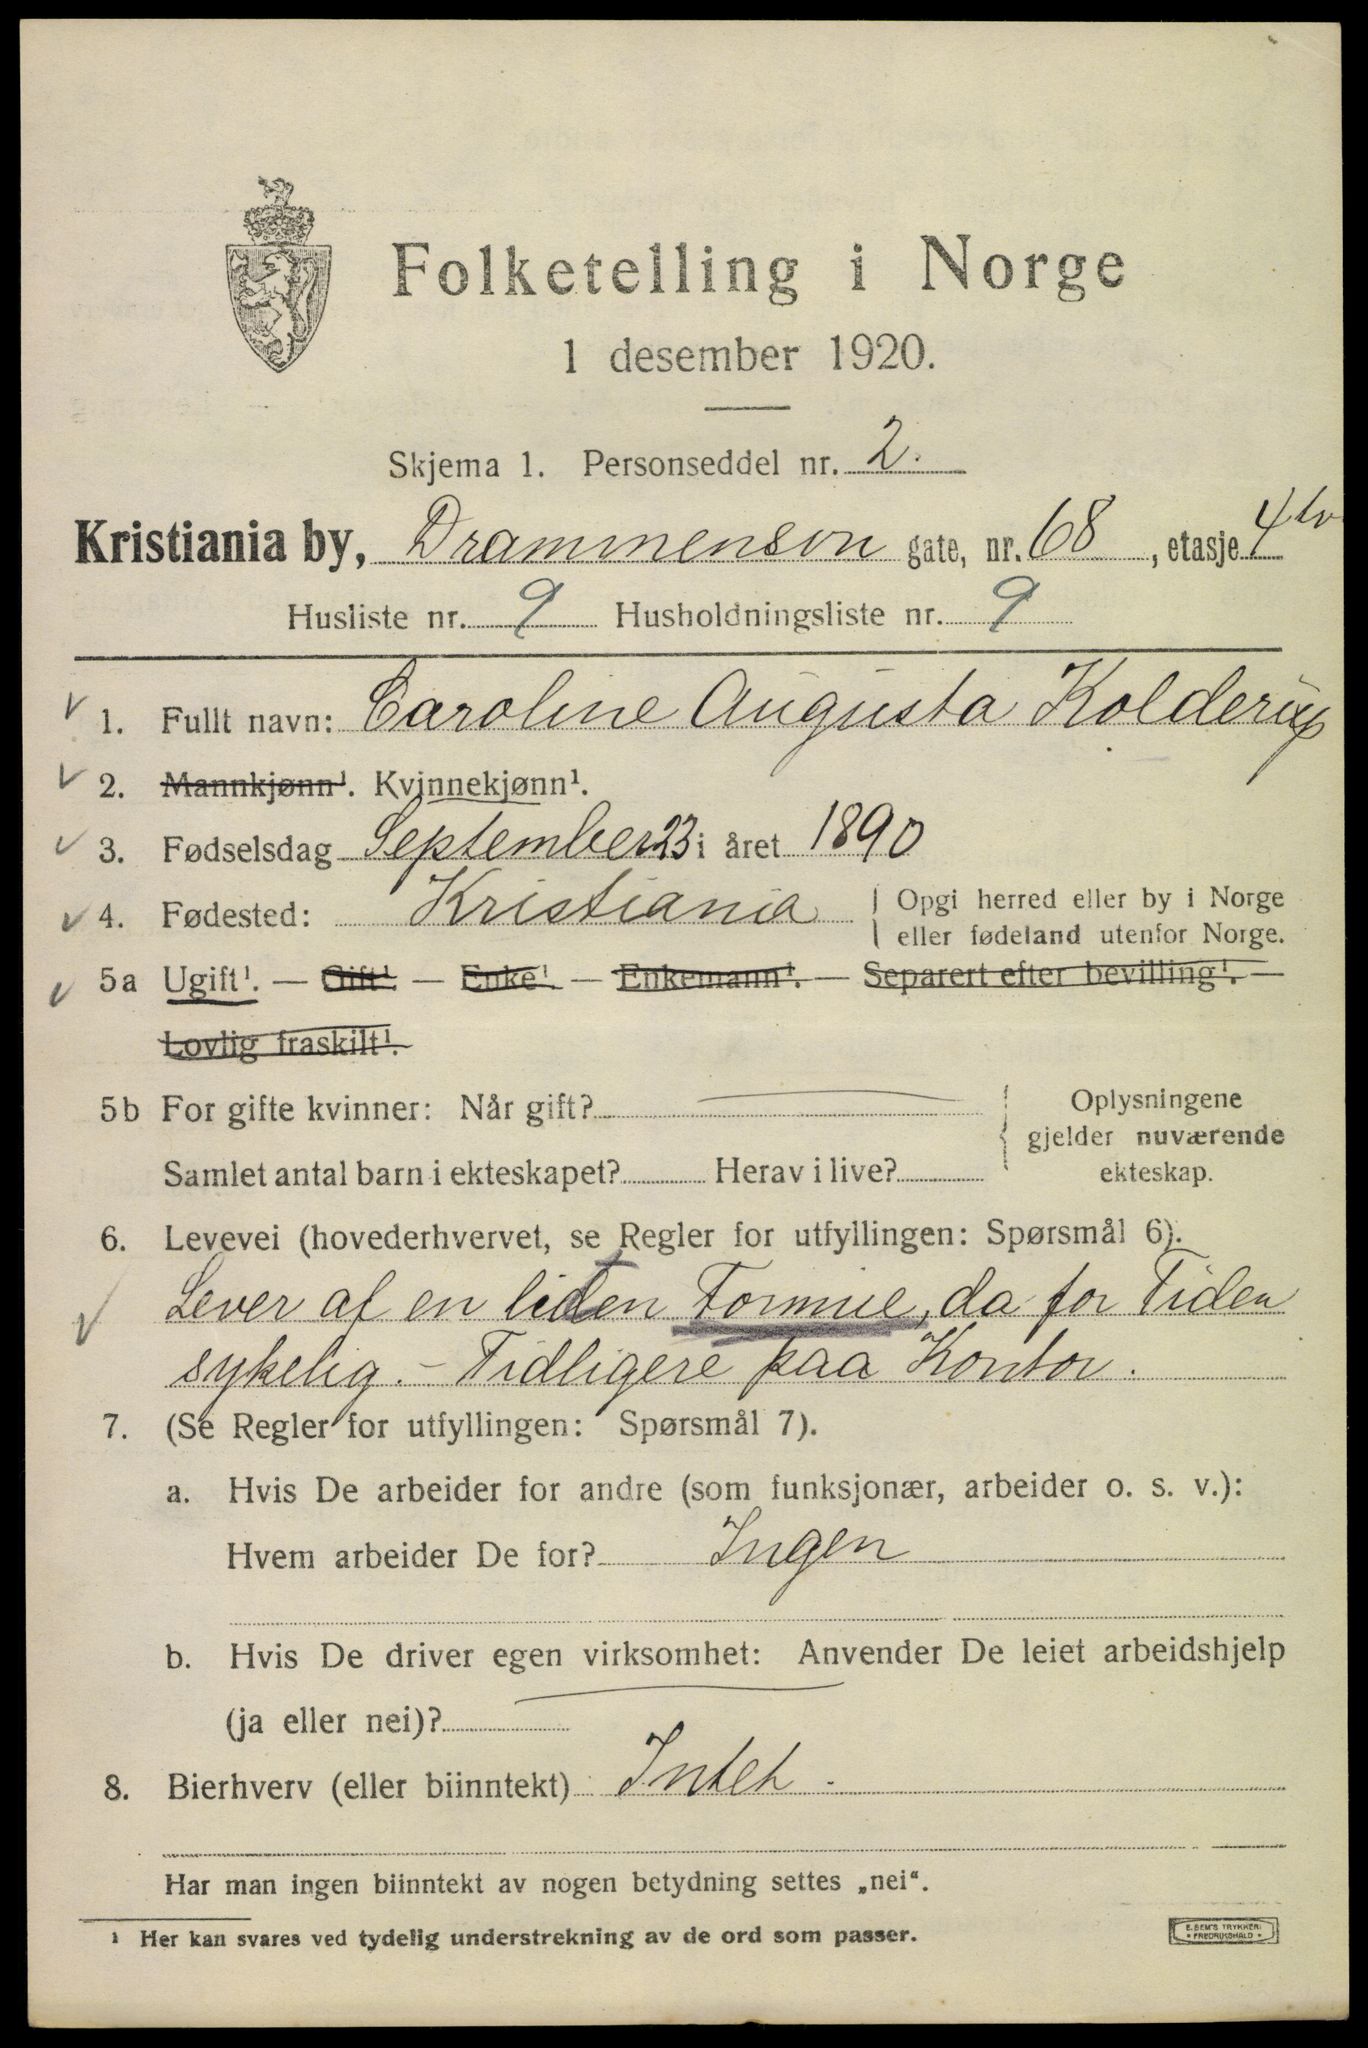 Folketelling i Norge
1 desember 1920.
Skjema 1. Personseddel nr. 2.
Kristiania by, Drammensvn gate, nr. 68, etasje 4 tv
Husliste nr. 9 Husholdningsliste nr. 9
1. Fullt navn: Caroline Augusta Kolderup
2. Mannkjønn¹. Kvinnekjønn¹.
3. Fødselsdag September 23 i året 1890
4. Fødested: Kristiania Opgi herred eller by i Norge
eller fødeland utenfor Norge.
5a Ugift¹. — Gift¹. — Enke¹. — Enkemann¹. — Separert efter bevilling¹. —
Lovlig fraskilt¹.
5b For gifte kvinner: Når gift? Oplysningene
gjelder nuværende
Samlet antal barn i ekteskapet? Herav i live? ekteskap.
6. Levevei (hovederhvervet, se Regler for utfyllingen: Spørsmål 6).
Lever af en liden Formue, da for Tiden
sykelig. – Tidligere paa Kontor.
7. (Se Regler for utfyllingen: Spørsmål 7).
a. Hvis De arbeider for andre (som funksjonær, arbeider o. s. v.):
Hvem arbeider De for? Ingen
b. Hvis De driver egen virksomhet: Anvender De leiet arbeidshjelp
(ja eller nei)?
8. Bierhverv (eller biinntekt) Intet.
Har man ingen biinntekt av nogen betydning settes „nei“.
¹ Her kan svares ved tydelig understrekning av de ord som passer.
E. SEM'S TRYKKERI
• FREDRIKSHALD •